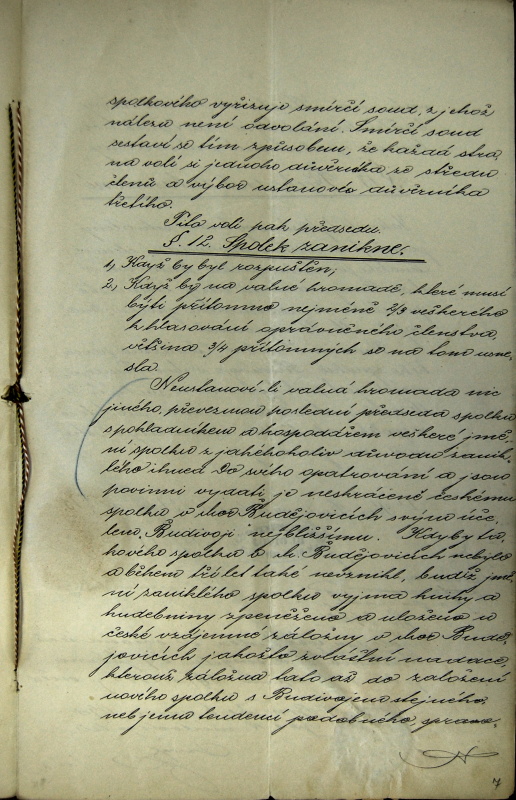 spolkového vyřizuje smírčí soud, z jehož
nálezu není odvolání. Smírčí soud
sestaví se tím způsobem, že každá stra-
na volí si jednoho důvěrníka ze středu
členů a výbor ustanoví důvěrníka
třetího.
Tito volí pak předsedu.
§. 12. Spolek zanikne.
1, Když by byl rozpuštěn,
2, Když by na valné hromadě, které musí
býti přítomno nejméně 2/3 veškerého
k hlasování oprávněného členstva,
většina 3/4 přítomných se na tom usne-
sla.
Neustanoví-li valná hromada nic
jiného, převezmou poslední předseda spolku
s pokladníkem a hospodářem veškeré jmě-
ní spolku z jakéhokoliv důvodu zanik-
lého ihned do svého opatrování a jsou
povinni vydati je neztrácené českému
spolku v Budějovicích svým úče-
lem „Budivoji" nejbližšímu. Kdyby ta-
kového spolku v Č. Budějovicích nebylo
a během tří let také nevznikl, budiž jmě-
ní zaniklého spolku vyjma knihy a
hudebniny zpeněženo a uloženo u
české vzájemné záložny v Budě-
jovicích jakožto zvláštní nadace,
kterouž záložna tato až do založení
nového spolku s Budivojem stejného,
neb jemu tendencí podobného, spravo-
7